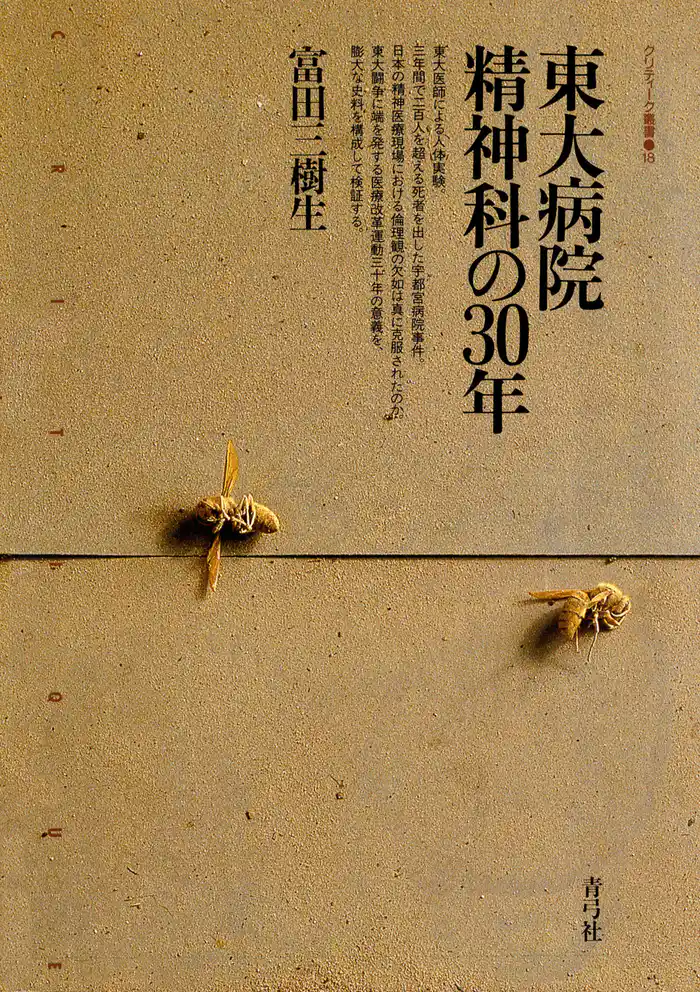 クリティーク叢書●18
東大病院
精神科の30年
東大医師による人体実験。
三年間で二百人を超える死者を出した宇都宮病院事件。
日本の精神医療現場における倫理観の欠如は真に克服されたのか。
東大闘争に端を発する医療改革運動三十年の意義を、
膨大な史料を構成して検証する。
富田三樹生
CRITIQUE
青弓社